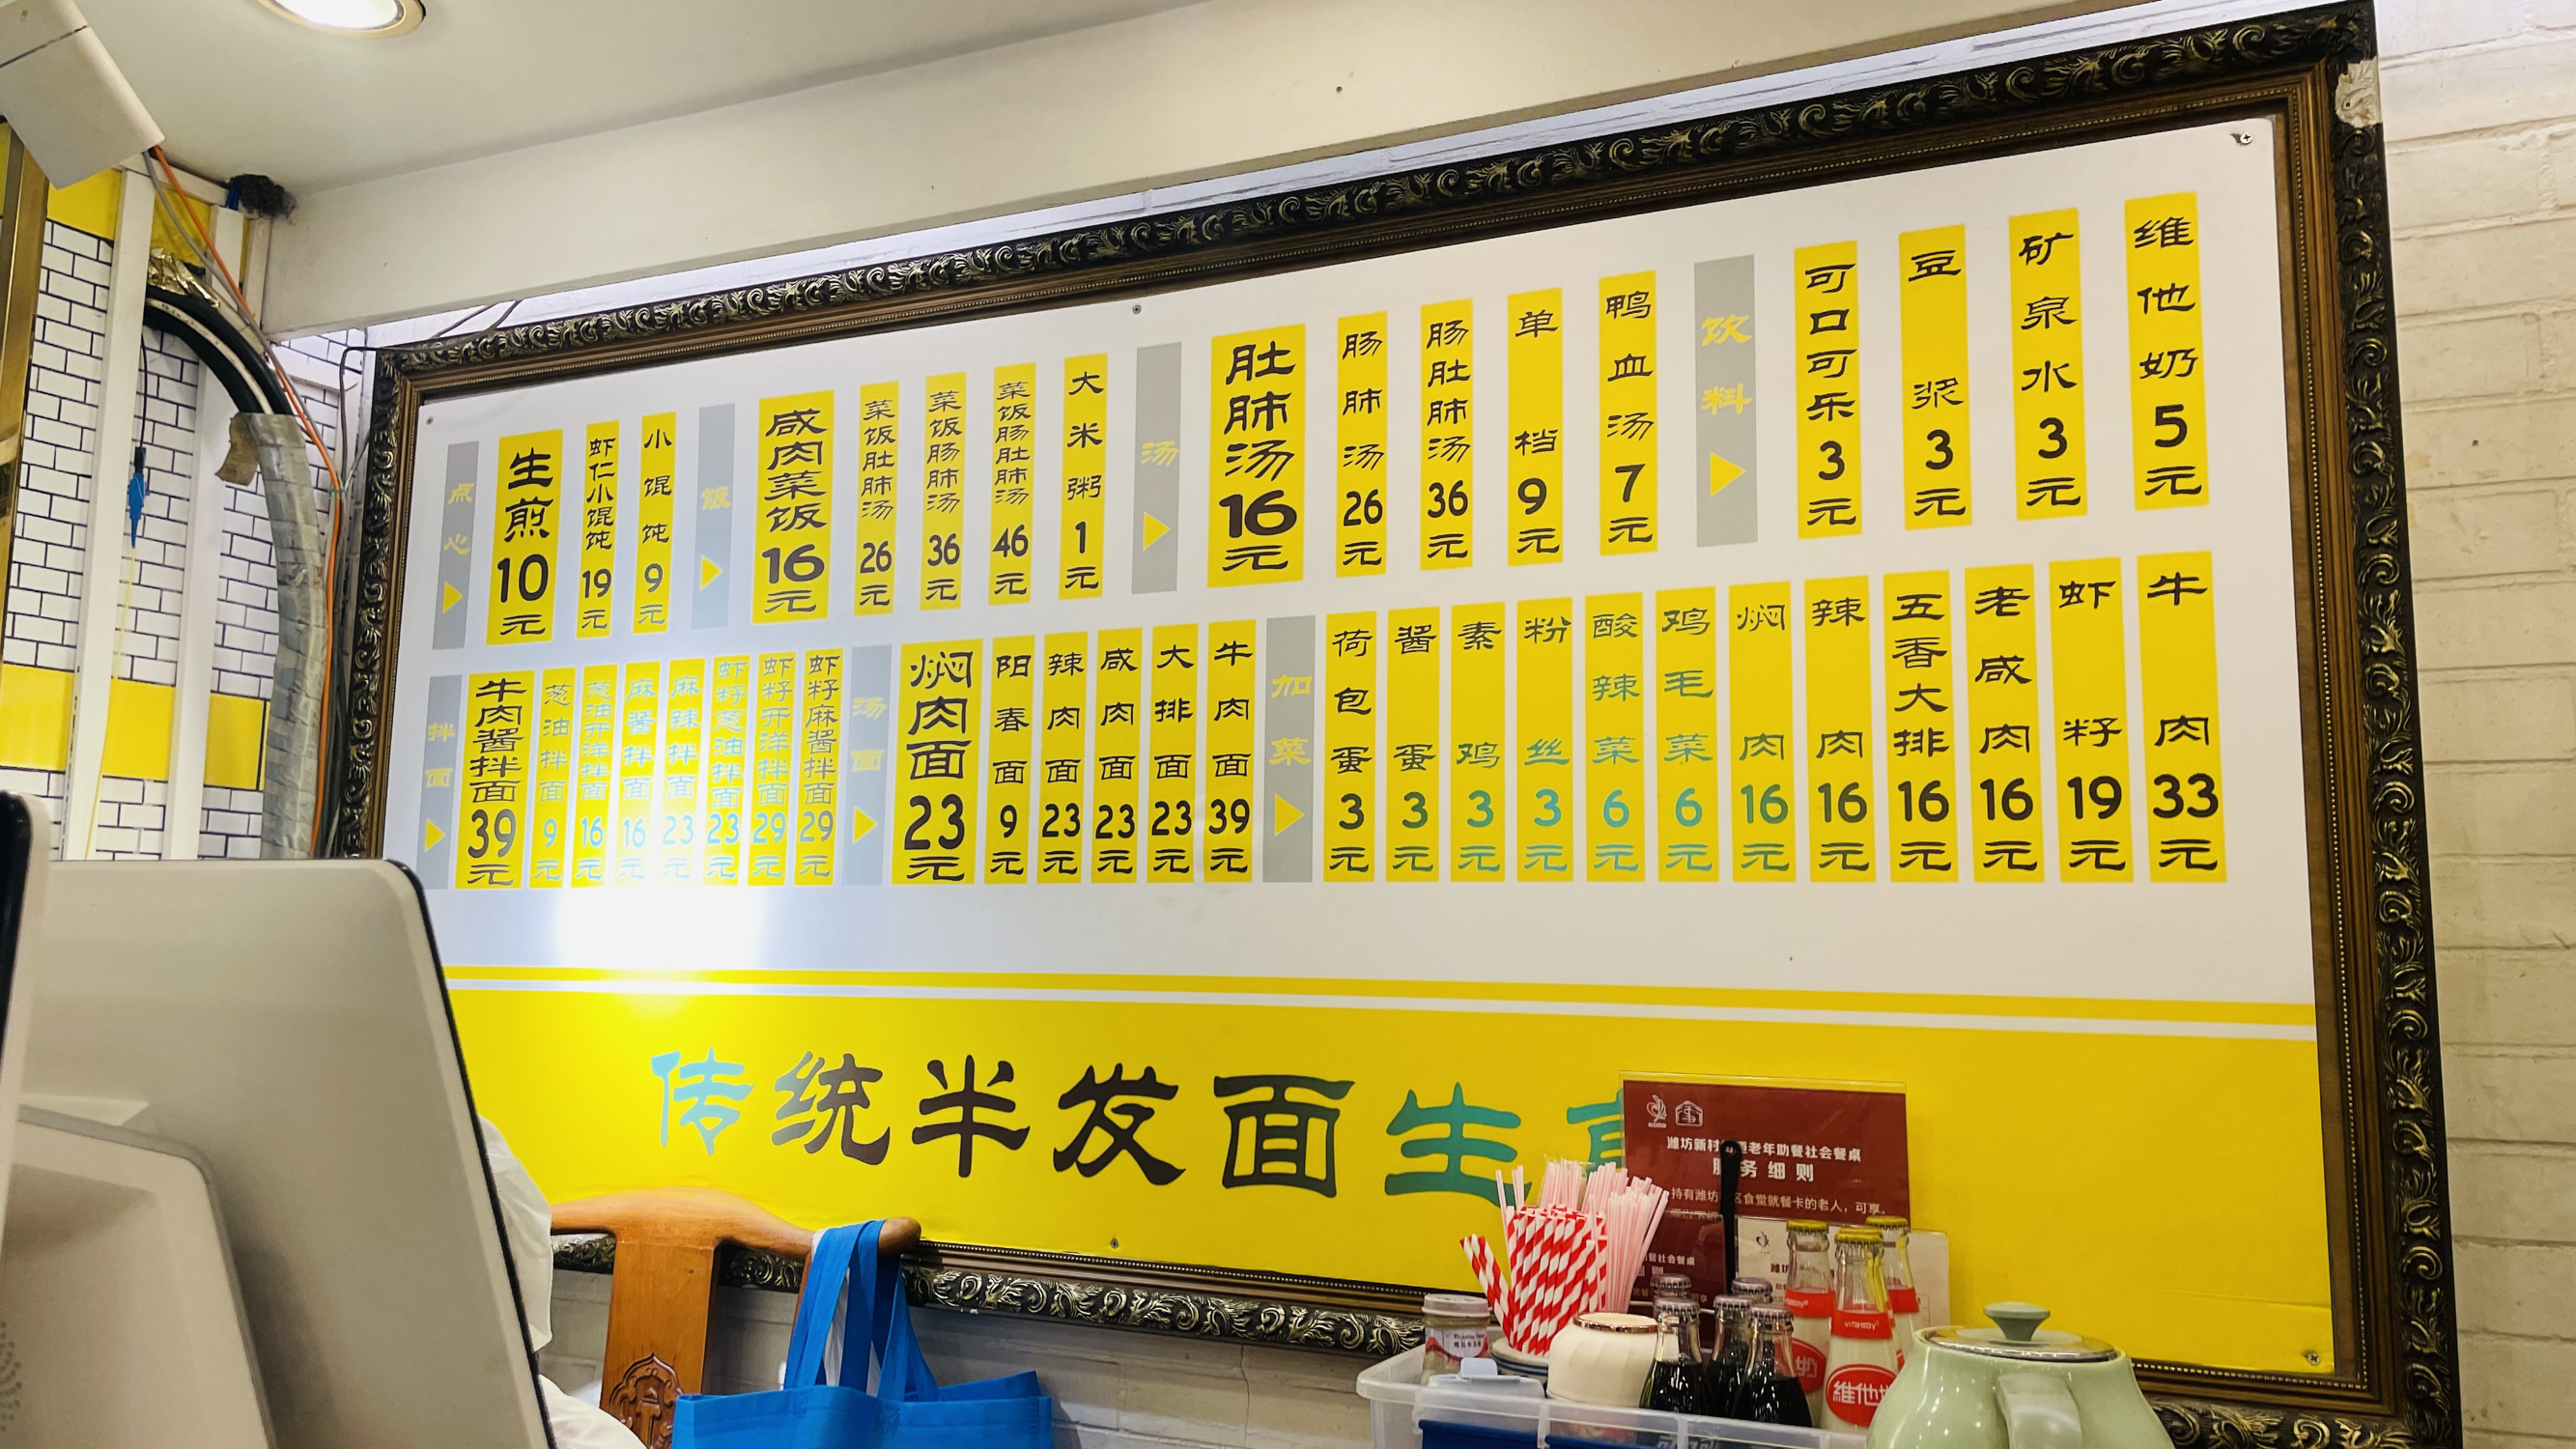 点心
生煎10元
虾仁小馄饨19元
小馄饨9元
饭
咸肉菜饭16元
菜饭肚肺汤26元
菜饭肠肺汤36元
菜饭肠肚肺汤46元
大米粥1元
汤
肚肺汤16元
肠肺汤26元
肠肚肺汤36元
单档9元
鸭血汤7元
饮料
可口可乐3元
豆浆3元
矿泉水3元
维他奶5元
拌面
牛肉酱拌面39元
葱油拌面9元
葱油开洋拌面16元
麻酱拌面16元
麻辣拌面23元
虾籽葱油拌面23元
虾籽开洋拌面29元
虾籽麻酱拌面29元
汤面
焖肉面23元
阳春面9元
辣肉面23元
咸肉面23元
大排面23元
牛肉面39元
加菜
荷包蛋3元
酱蛋3元
素鸡3元
粉丝3元
酸辣菜6元
鸡毛菜6元
焖肉16元
辣肉16元
五香大排16元
老咸肉16元
虾籽19元
牛肉33元
传统半发面生
潍坊新村 老年助餐社会餐桌
务细则
持有潍坊 区食堂就餐卡的老人，可享
vitasoy
維他奶